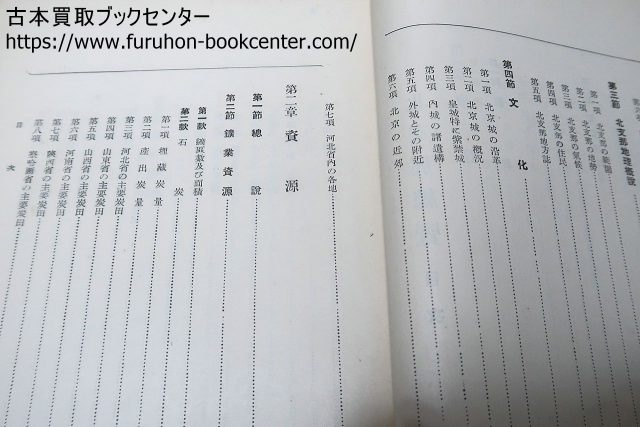 古本買取ブックセンター
https://www.furuhon-bookcenter.com/
第三節 北支那地理概說
第一項 北支那の範圍
第二項 北支那の地勢
第三項 北支那の氣候
第四項 北支那の住民
第五項 北支那地方誌
第四節 文化
第一項 北京城の沿革
第二項 北京城の槪況
第三項 皇城特に紫禁城
第四項 內城の諸遺構
第五項 外城とその附近
第六項 北京の近郊
第七項 河北省內の各地
第二章 資源
第一節 總說
第二節 鑛業資源
第一款 鑛區數及び面積
第二款 石炭
第一項 埋藏炭量
第二項 產出炭量
第三項 河北省の主要炭田
第四項 山東省の主要炭田
第五項 山西省の主要炭田
第六項 河南省の主要炭田
第七項 陝西省の主要炭田
第八項 察哈爾省の主要炭田
目次